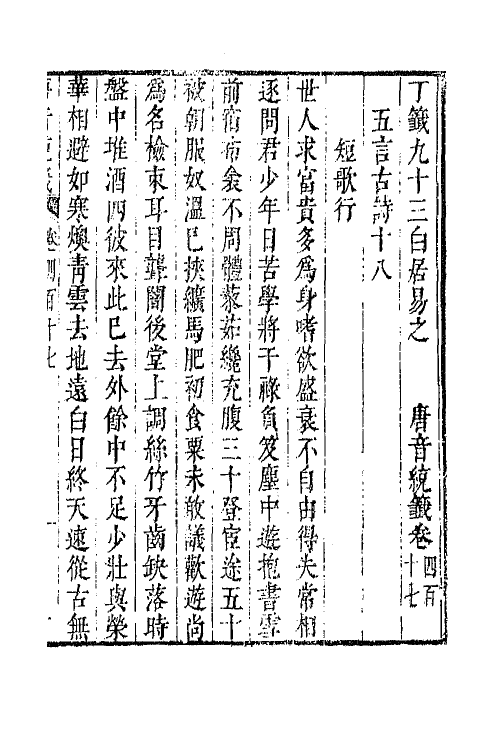 丁籤九十三白居易之　唐音統籤卷四百十七
五言古詩十八
短歌行
世人求富貴多爲身嗜欲盛衰不自由得失常相
逐問君少年日苦學將干祿負笈塵中遊抱書雪
前宿布衾不周體藜茹纔充腹三十登宦途五十
被朝服奴溫巳挾纊馬肥初食粟未敢議歡遊尚
爲名檢束耳目聾闇後堂上調絲竹牙齒缺落時
盤中堆酒肉彼來此巳去外餘中不足少壯與榮
華相避如寒燠靑雲去地遠白日終天速從古無